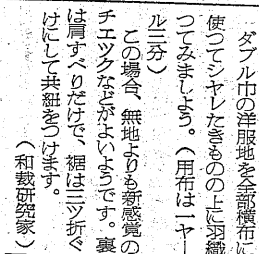 ダブル巾の洋服地を全部横布に
使つてシヤレたきものの上に羽織
つてみましよう。（用布は一ヤー
ル三分）
この場合、無地よりも新感覚の
チエツクなどがよいようです。裏
は肩すべりだけで、裾は三ツ折ぐ
けにして共紐をつけます。
（和裁研究家）